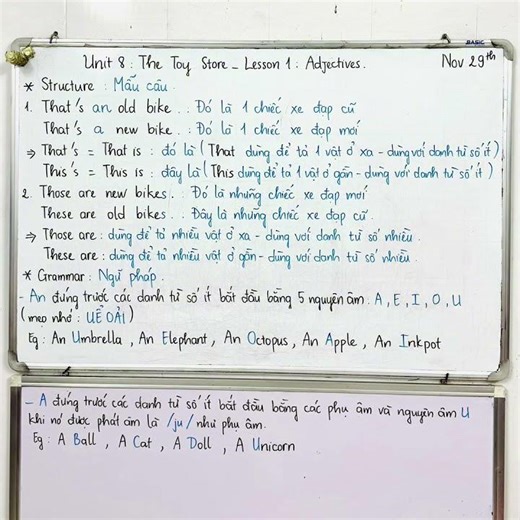 BASIC
Unit 8 : The Toy Store _ Lesson 1 : Adjectives. Nov 29th
* Structure : Mẫu câu.
1. That's an old bike . : Đó là 1 chiếc xe đạp cũ
That's a new bike . : Đó là 1 chiếc xe đạp mới
⇒ That's = That is : đó là ( That dùng để tả 1 vật ở xa - dùng với danh từ số ít )
This's = This is : đây là ( This dùng để tả 1 vật ở gần - dùng với danh từ số ít )
2. Those are new bikes . : Đó là những chiếc xe đạp mới
These are old bikes . : Đây là những chiếc xe đạp cũ.
⇒ Those are : dùng để tả nhiều vật ở xa - dùng với danh từ số nhiều.
These are : dùng để tả nhiều vật ở gần - dùng với danh từ số nhiều.
* Grammar : Ngữ pháp.
- An đứng trước các danh từ số ít bắt đầu bằng 5 nguyên âm : A, E, I, O, U
( mẹo nhớ : UỂ OẢI )
Eg : An Umbrella , An Elephant , An Octopus , An Apple , An Inkpot
- A đứng trước các danh từ số ít bắt đầu bằng các phụ âm và nguyên âm U
khi nó được phát âm là /ju/ như phụ âm.
Eg : A Ball , A Cat , A Doll , A Unicorn